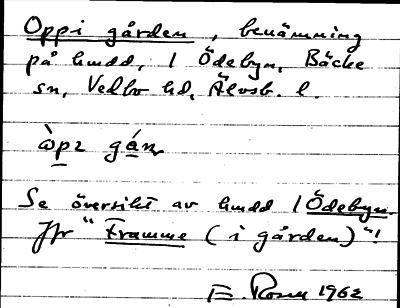 Oppi gården, benämning
på hmdd, 1 Ödebyn, Bäcke
sn, Vedbo hd, Älvsb. l.
Se översikt av hmdd 1 Ödebyn.
Jfr "Framme (i gården)"!
E. 1962